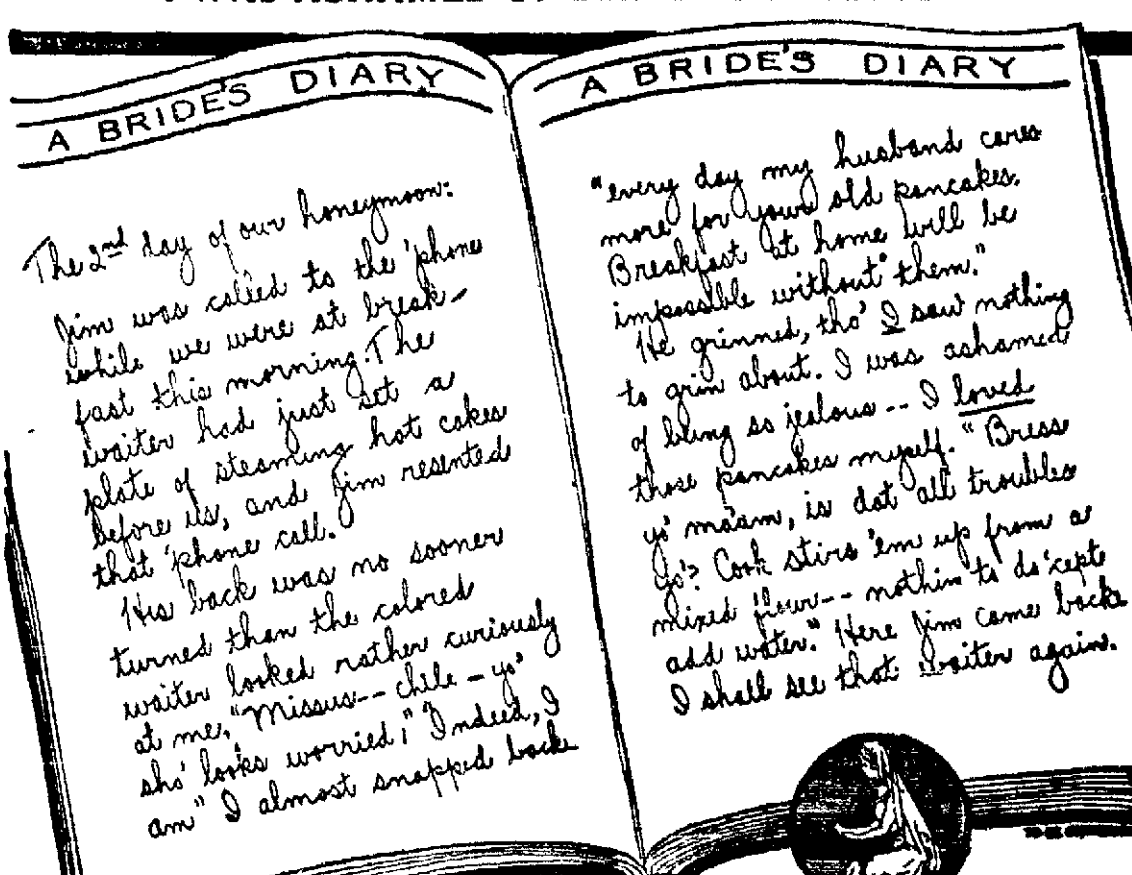 A BRIDE'S DIARY
The 2nd day of our honeymoon:
Jim was called to the 'phone
while we were at break-
fast this morning. The
waiter had just set a
plate of steaming hot cakes
before us, and Jim resented
that 'phone call.
His back was no sooner
turned than the colored
waiter looked rather curiously
at me. "Missus-- chile - yo'
sho' looks worried," "Indeed, I
am" I almost snapped back
A BRIDE'S DIARY
"every day my husband cares
more for your old pancakes.
Breakfast at home will be
impossible without them."
He grinned, tho' I saw nothing
to grin about. I was ashamed
of being so jealous -- I loved
those pancakes myself. "Bress
yo' ma'am, is dat all troubles
yo'? Cook stirs 'em up from a
mixed flour-- nothin to do 'cept
add water." Here Jim came back
I shall see that waiter again.